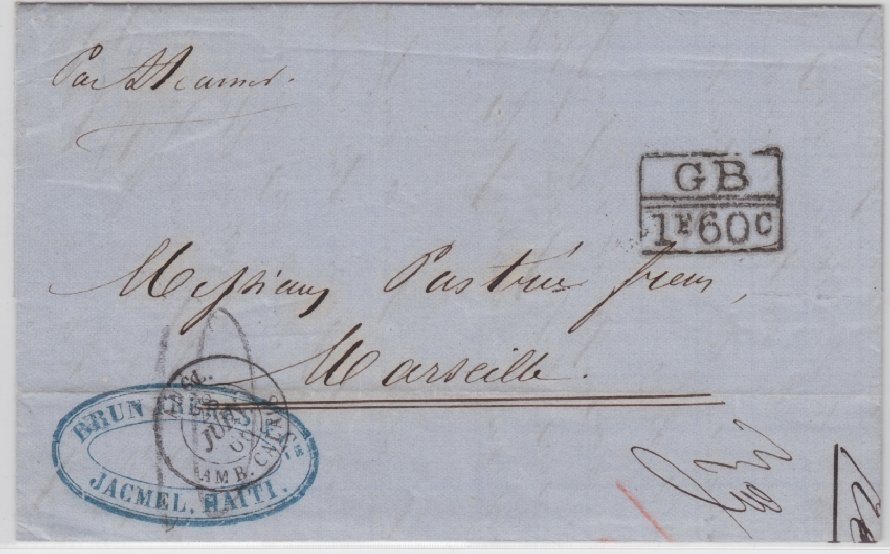 Par Steamer.
GB
1F60C
Messieurs Pastré frères,
Marseille.
BRUN FRÈRES &
JACMEL, HAITI.
JUIN
AMB. CALAIS